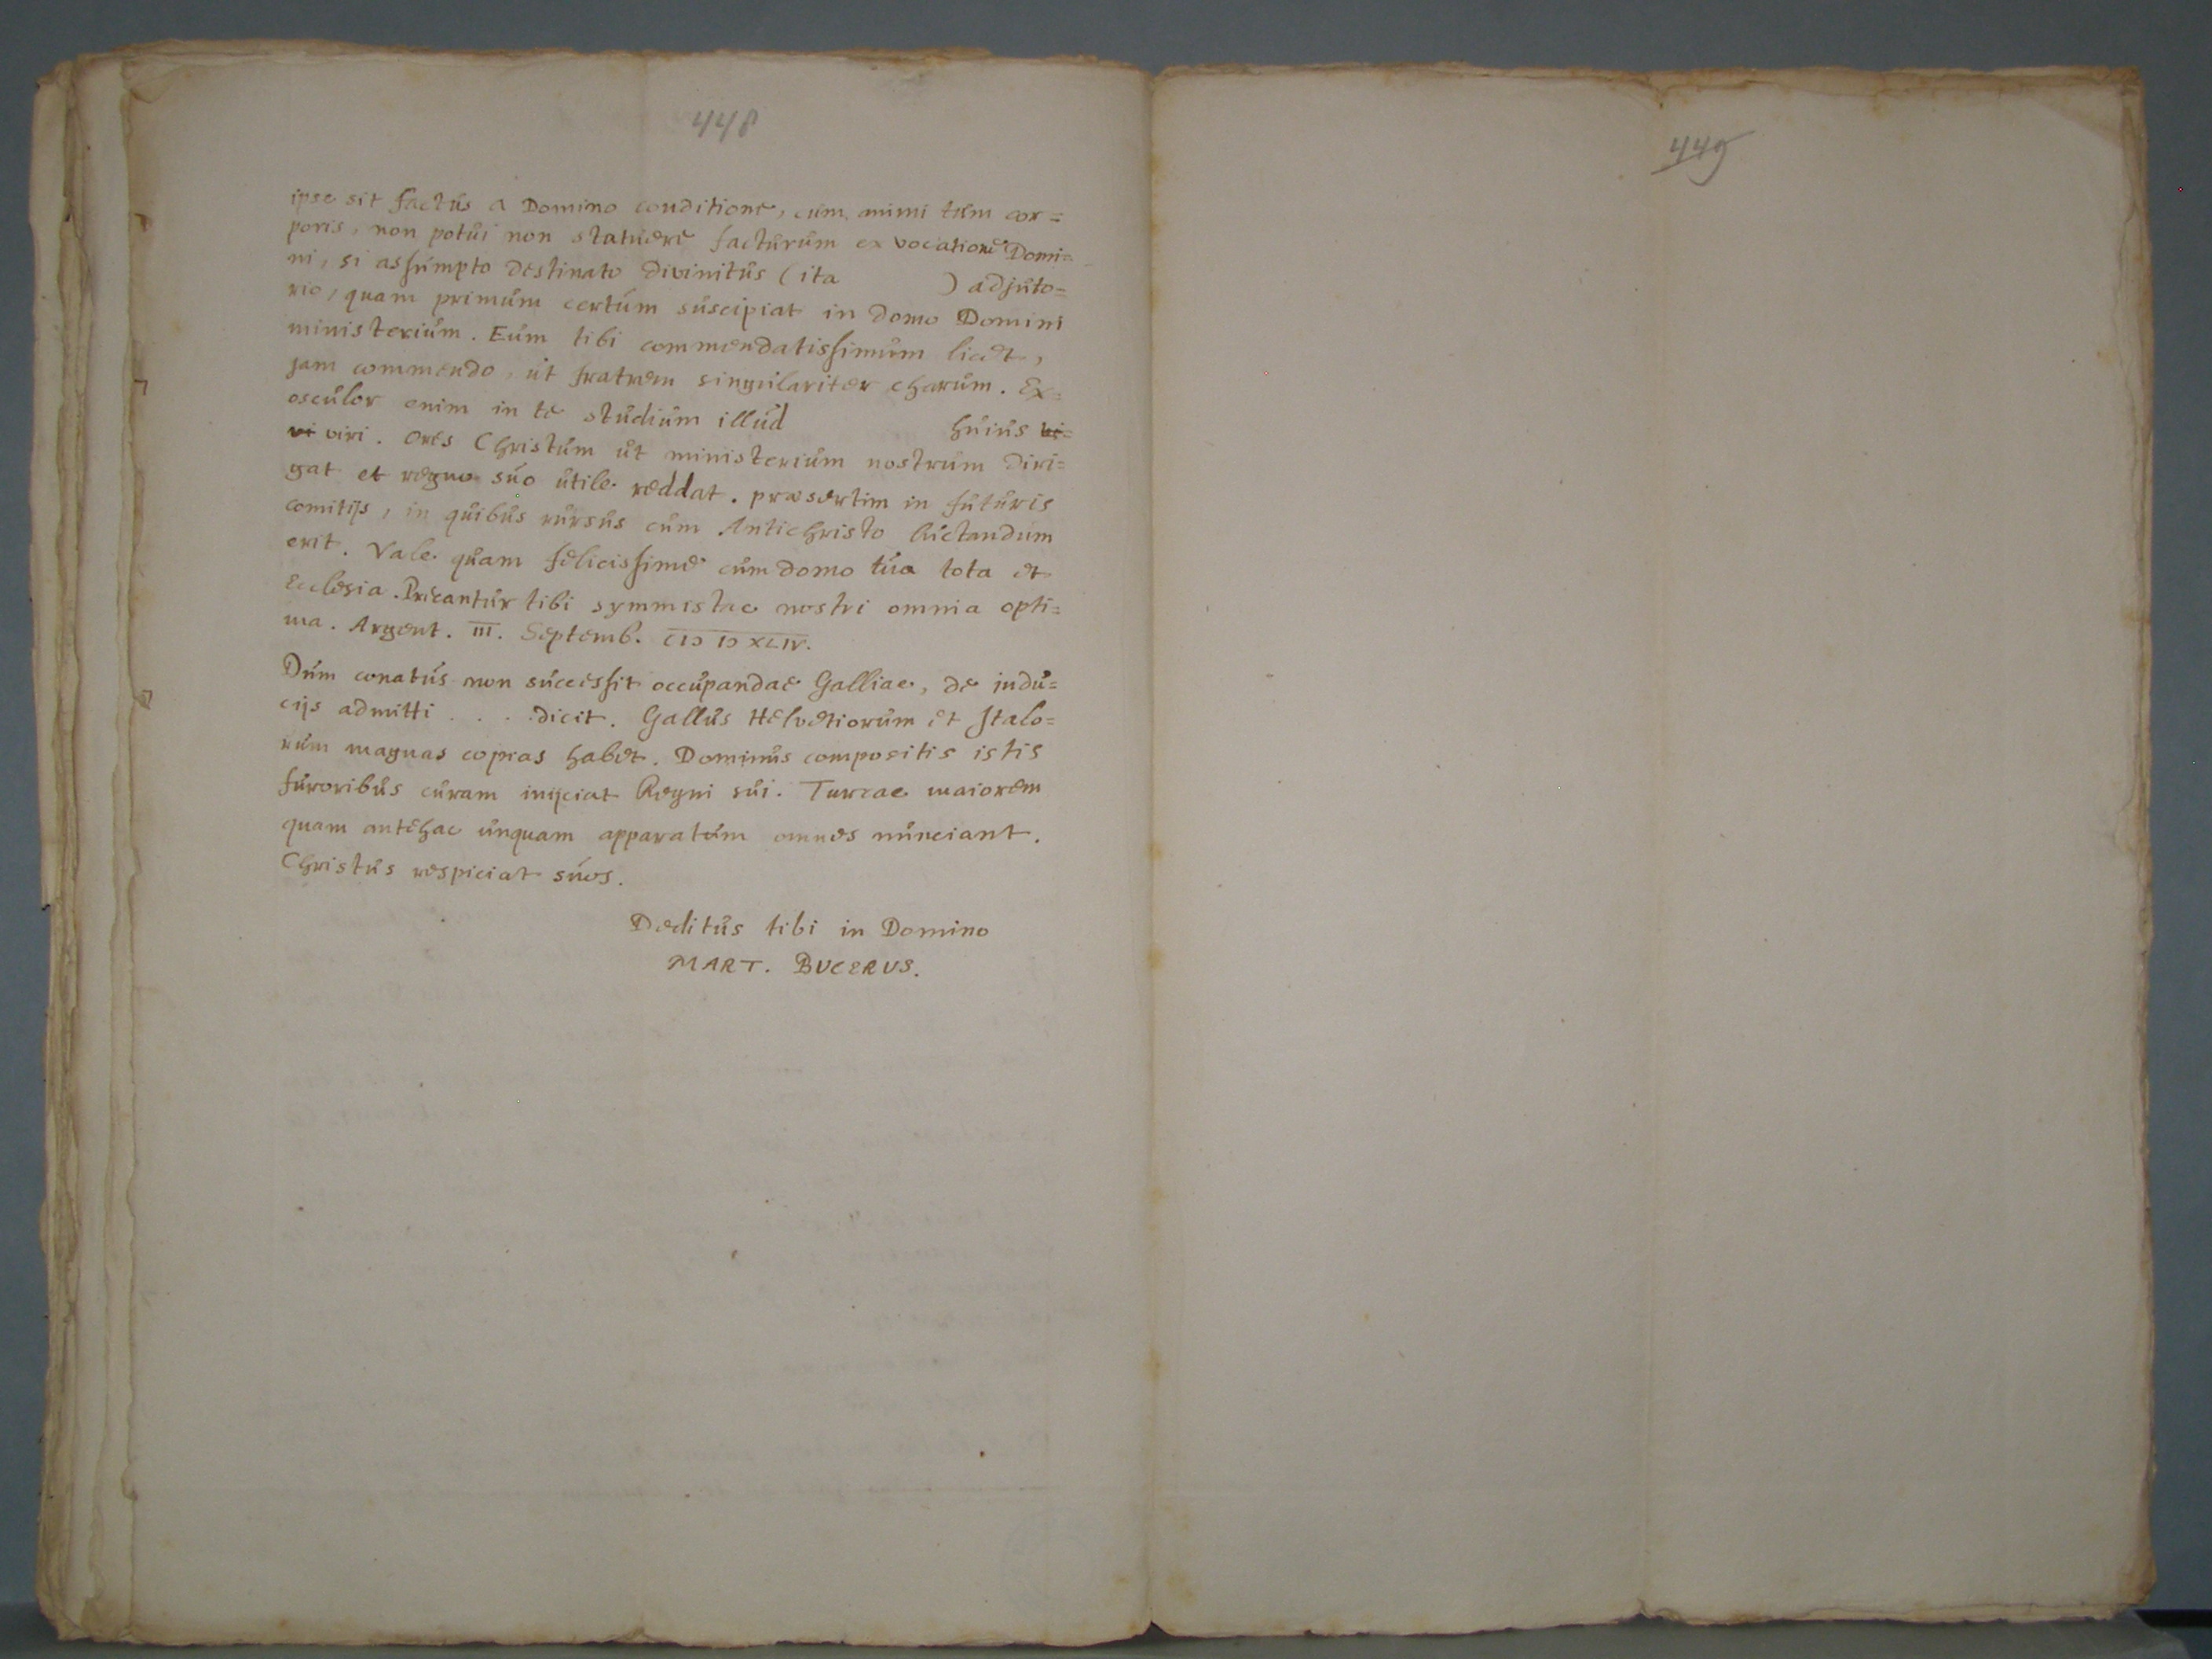 448
ipse sit factus a Domino conditione, cum animi tum cor=
poris, non potui non statuere facturum ex vocatione Domi=
ni, si assumpto destinato divinitus (ita ) adjuto=
rio, quam primum certum suscipiat in domo Domini
ministerium. Eum tibi commendatissimum licet,
jam commendo, ut fratrem singulariter charum. Ex=
osculor enim in te studium illud huius vi=
vi viri. Ores Christum ut ministerium nostrum diri=
gat et regno suo utile reddat. praesertim in futuris
comitijs, in quibus rursus cum Antichristo luctandum
erit. Vale quam felicissime cum domo tua tota et
Ecclesia. Precantur tibi symmistae nostri omnia opti=
ma. Argent. III. Septemb. CIↃ IↃ XLIV.
Dum conatus non successit occupandae Galliae, de indu=
cijs admitti . . . dicit. Gallus Helvetiorum et Italo=
rum magnas copias habet. Dominus compositis istis
furoribus curam inijciat Regni sui. Turcae maiorem
quam antehac unquam apparatum omnes nunciant.
Christus respiciat suos.
Deditus tibi in Domino
MART. BUCERUS.
449